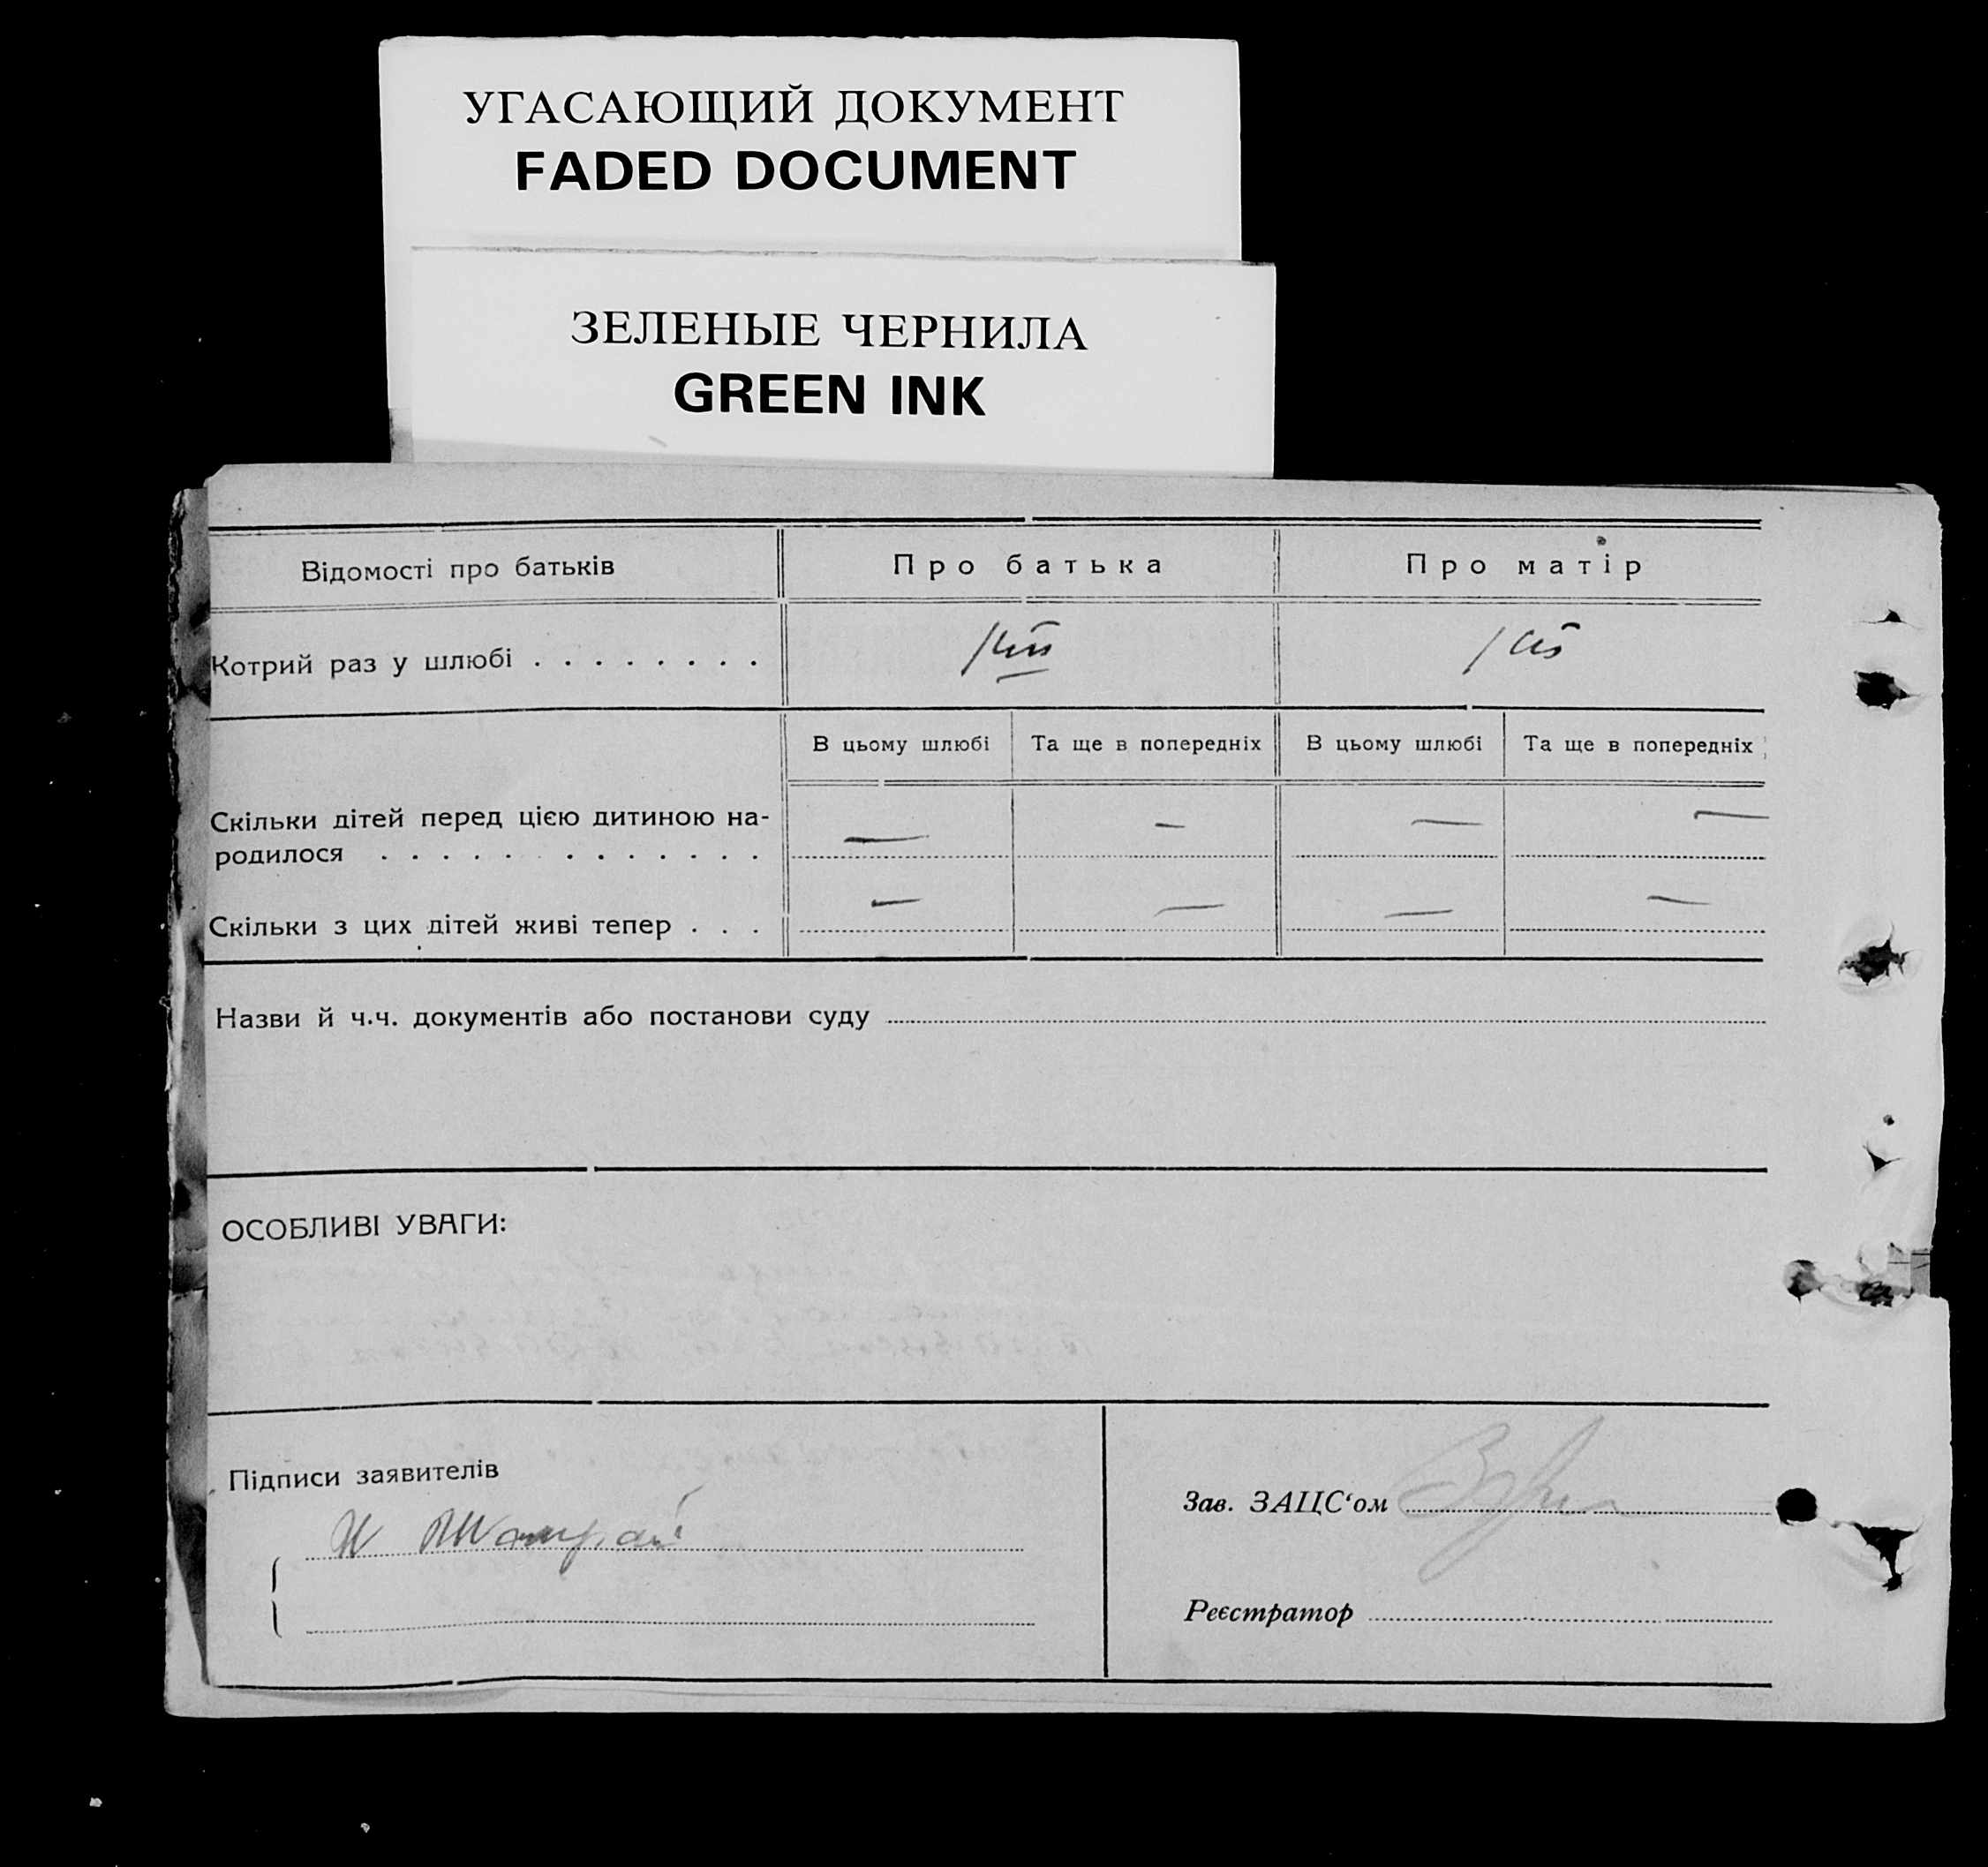 УГАСАЮЩИЙ ДОКУМЕНТ
FADED DOCUMENT
ЗЕЛЕНЫЕ ЧЕРНИЛА
GREEN INK
Відомості про батьків Про батька Про матір
Котрий раз у шлюбі . . . . . . . .
В цьому шлюбі Та ще в попередніх В цьому шлюбі Та ще в попередніх
Скільки дітей перед цією дитиною на-
родилося . . . . . . . . . . . . — — — —
Скільки з цих дітей живі тепер . . . — — — —
Назви й ч.ч. документів або постанови суду
ОСОБЛИВІ УВАГИ:
Підписи заявителів
Зав. ЗАЦС‘ом
Реєстратор